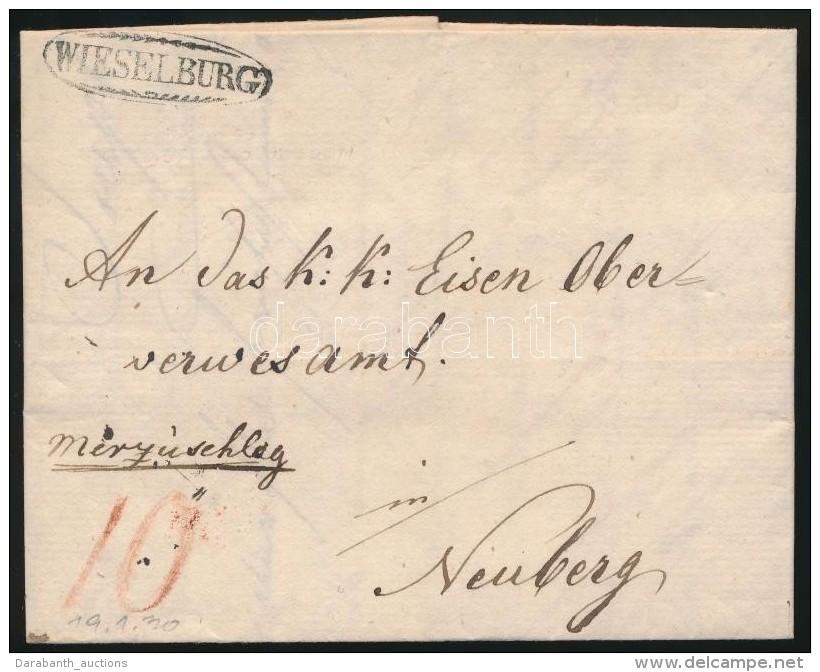 WIESELBURG
An das K: K: Eisen Ober=
verwesamt.
darabanth
Merzuschlag
in
10
Neuberg
19.1.30
Darabanth_auctions
www.delcampe.net